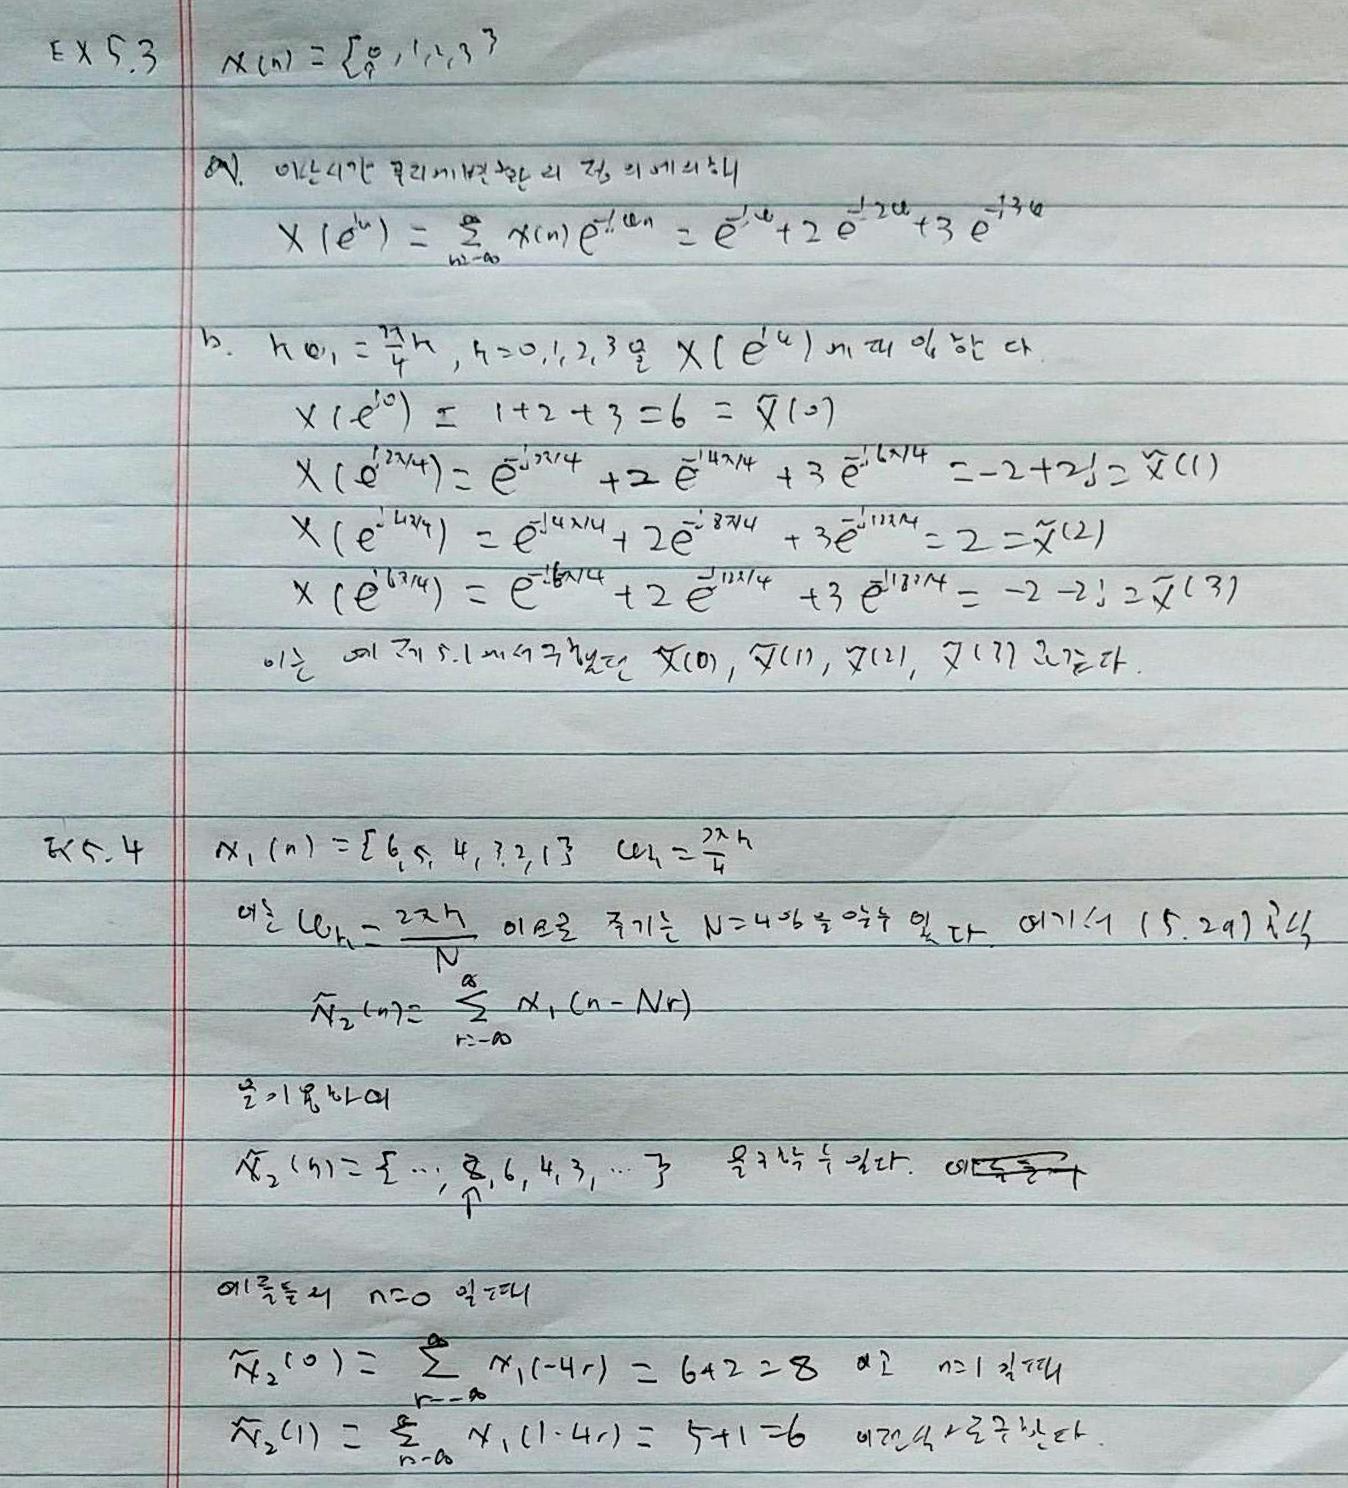 EX 5.3 x(n) = {0, 1, 2, 3}
↑
a). 이산시간 푸리에변환의 정의에의해
X(e^{jω}) = Σ_{n=-∞}^{∞} x(n) e^{-jωn} = e^{-jω} + 2e^{-j2ω} + 3e^{-j3ω}
b. kω₁ = 2π/4 k, k=0,1,2,3을 X(e^{jω})에 대입한다.
X(e^{j0}) = 1+2+3 = 6 = X̃(0)
X(e^{j2π/4}) = e^{-j2π/4} + 2e^{-j4π/4} + 3e^{-j6π/4} = -2+2j = X̃(1)
X(e^{j4π/4}) = e^{-j4π/4} + 2e^{-j8π/4} + 3e^{-j12π/4} = 2 = X̃(2)
X(e^{j6π/4}) = e^{-j6π/4} + 2e^{-j12π/4} + 3e^{-j18π/4} = -2-2j = X̃(3)
이는 예제 5.1에서 구했던 X̃(0), X̃(1), X̃(2), X̃(3)과 같다.
EX 5.4 x₁(n) = {6, 5, 4, 3, 2, 1} ω_k = 2πk/4
ω_k = 2πk/N 이므로 주기는 N=4임을 알 수 있다. 여기서 (5.29)공식
x̃₂(n) = Σ_{r=-∞}^{∞} x₁(n-Nr)
을 이용하여
x̃₂(n) = {..., 8, 6, 4, 3, ...} 을 구할 수 있다.
↑
예를들어 n=0 일때
x̃₂(0) = Σ_{r=-∞}^{∞} x₁(-4r) = 6+2 = 8 이고 n=1 일때
x̃₂(1) = Σ_{r=-∞}^{∞} x₁(1-4r) = 5+1 = 6 이런식으로 구한다.